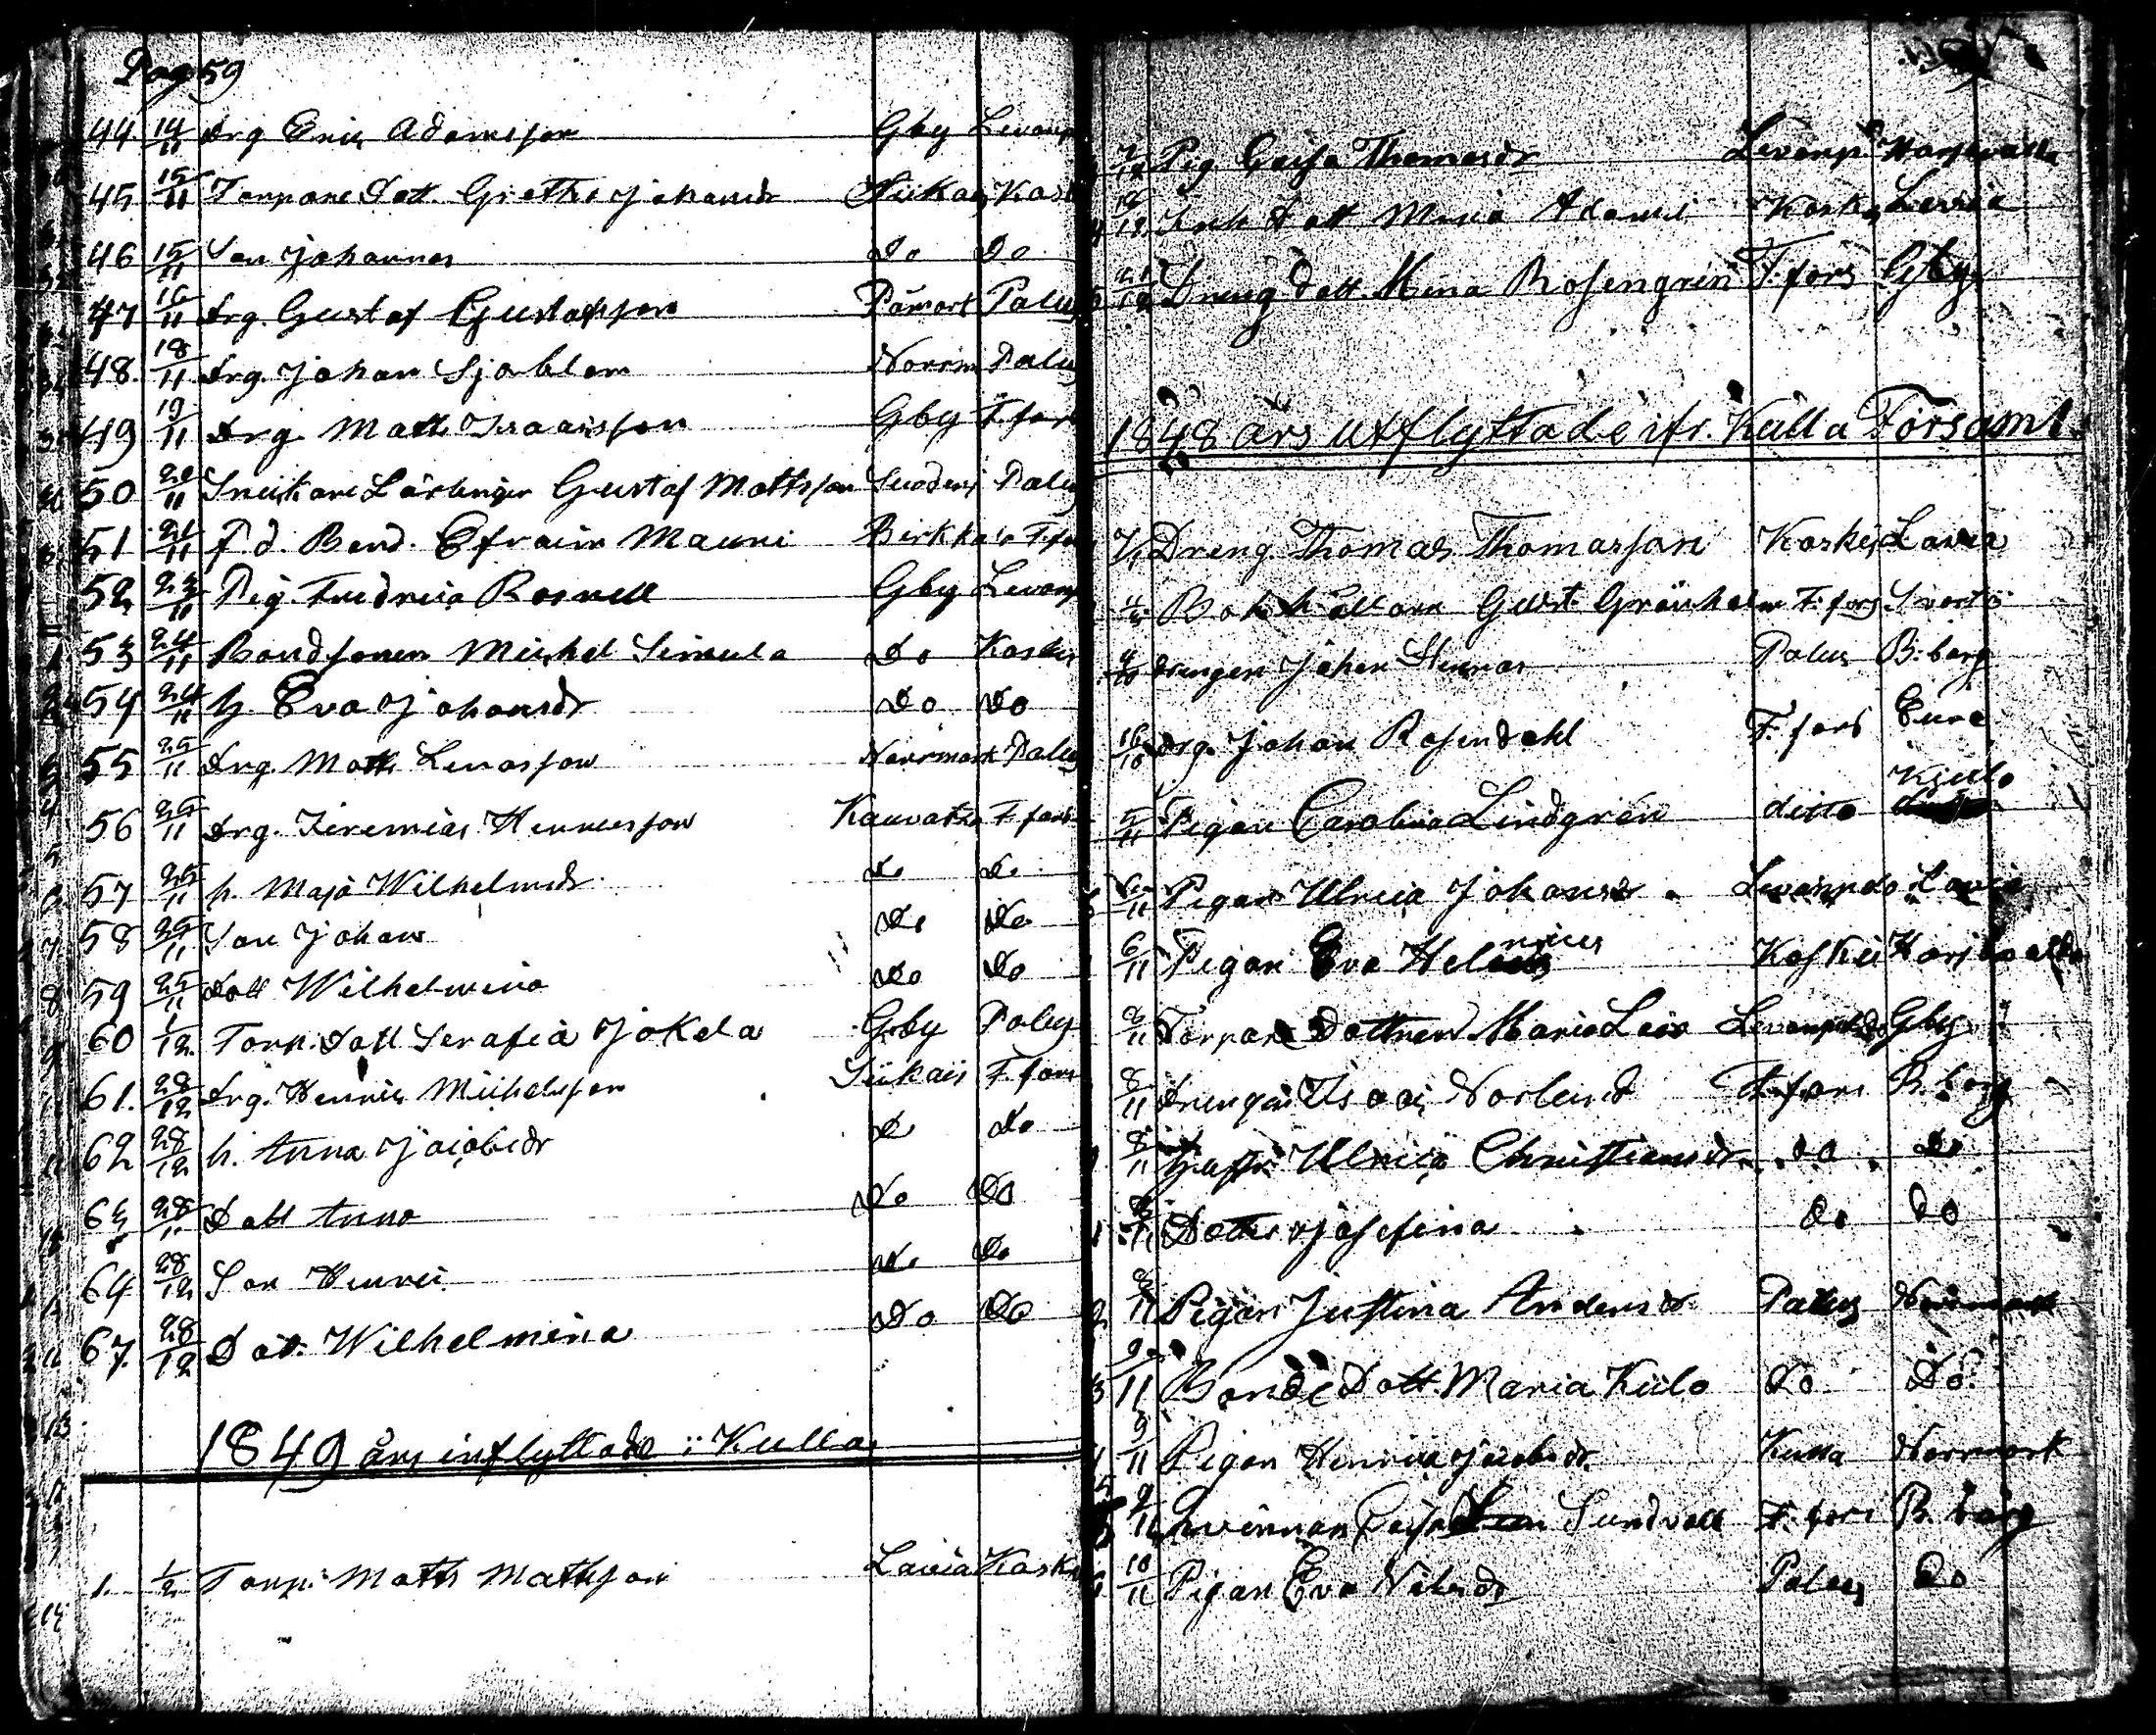 Pag 59
44 14/11 Drg Eric Adamsson Gby Levanp
45 15/11 Torpare Dott. Gretha Johansdr Siikais Kask
46 15/11 Son Johannes Do Do
47 16/11 Drg. Gustaf Gustafsson Påmark Palus
48. 18/11 Drg. Johan Sjöblom Norrm Palus
49 19/11 Drg. Matts Isaacsson Gby F.fors
50 20/11 Snickare Lärlingen Gustaf Mattsson Suoden Palus
51 21/11 f.d. Bond. Efraim Mauni Birkkala F.fo
52 23/11 Pig. Fredrica Rosnell Gby Levanp
53 24/11 Bondsonen Michel Simula Do Kaskis
54 24/11 h. Eva Johansdr Do Do
55 25/11 Drg. Matts Lucasson Norrmark Palus
56 25/11 Drg. Jeremias Henricsson Kauvatsa F.fors
57 25/11 h. Maja Wilhelmsdr. Do Do
58 25/11 Son Johan Do Do
59 25/11 Dott Wilhelmina Do Do
60 1/12. Torp. Dott Serafia Jokela Gby Palus
61. 28/12 Drg. Henric Michelsson Siikais F.fors
62 28/12 h. Anna Jacobsdr Do Do
63 28/12 Dott Anna Do Do
64 28/12 Son Henric Do Do
67. 28/12 Dot. Wilhelmina Do Do
1849 års inflyttade i Kulla
1. 1/2 Torp. Matts Mattsson Lavia Kask
7/12 Pig Caisa Thomasdr Levanp.
18/12 Inh Dott Maria Adamsd Kaskis Lavia
21/12 Dreng dott. Mina Rosengren F.fors Gby
1848 års utflyttade ifr. Kulla Församl.
7/1 Dreng. Thomas Thomasson Koskis Lavia
Bokhållare Gust. Grönholm F.fors Svartå
Drengen Johan Stenros Palus B:borg
16/10 Drg. Johan Rosendahl F.fors Eura
5/11 Pigan Carolina Lindgrén ditto Kiulo
6/11 Pigan Ulrica Johansd. Levanpelto Lavia
6/11 Pigan Eva Henrics Koskis Karjboelde
8/11 Torpare Dottren Maria Lisa Levanpelto Gby
8/11 Drengen Isaac Norlund F.fors B.borg
8/11 Hustr. Ulrica Christiansdr. do Do
8/11 Dotter Josefina Do Do
8/11 Pigan Justina Andersdr. Palus Norrmark
9/11 Bonde Dott. Maria Kiilo Do Do.
9/11 Pigan Henrica Jacobsdr. Kulla Norrmark
9/11 Qvinnan Caisa Sundvall F.fors B.borg
10/11 Pigan Eva Nilsdr Palus Do